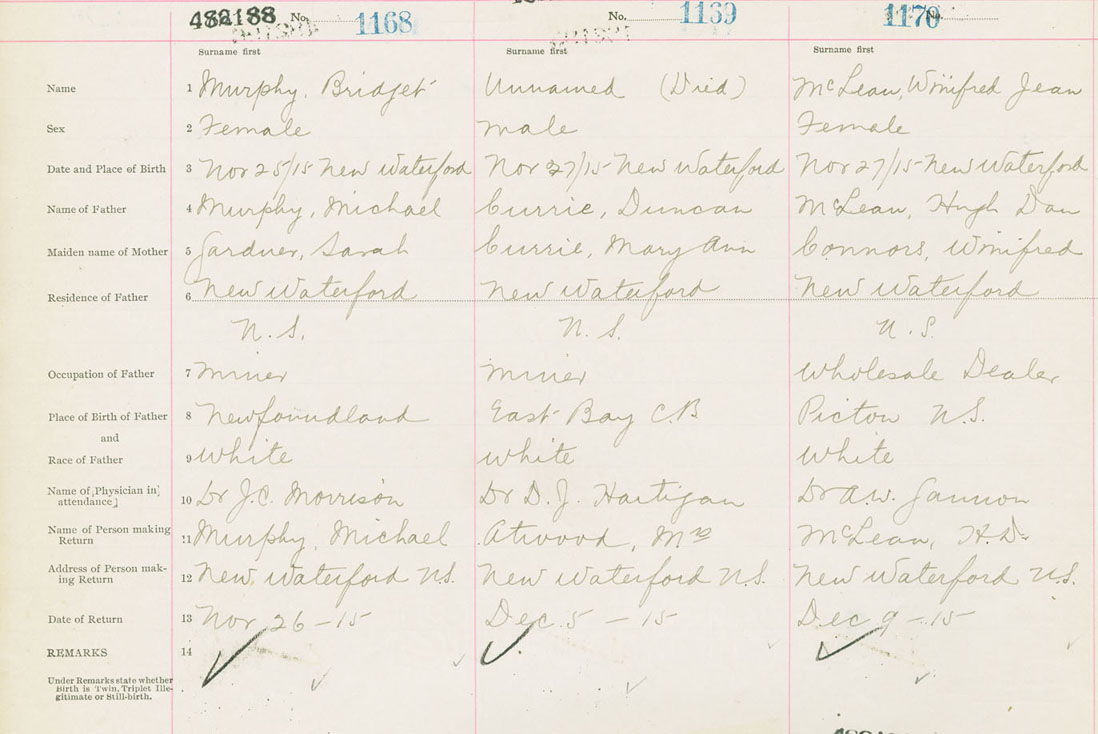 482188 No. 1168 No. 1169 1170 No.
Surname first Surname first Surname first
Name 1 Murphy, Bridget Unnamed (Died) McLean, Winifred Jean
Sex 2 Female male Female
Date and Place of Birth 3 Nov 25/15 New Waterford Nov 27/15 New Waterford Nov 27/15 New Waterford
Name of Father 4 Murphy, Michael Currie, Duncan McLean, Hugh Dan
Maiden name of Mother 5 Gardner, Sarah Currie, Mary Ann Connors, Winifred
Residence of Father 6 New Waterford New Waterford New Waterford
N.S. N.S. N.S.
Occupation of Father 7 miner miner Wholesale Dealer
Place of Birth of Father 8 Newfoundland East Bay C.B Pictou N.S.
and
Race of Father 9 White White White
Name of [Physician in
attendance] 10 Dr J.C. Morrison Dr D.J. Hartigan Dr A.W. Gannon
Name of Person making
Return 11 Murphy, Michael Atwood, Mrs McLean, H.D.
Address of Person mak-
ing Return 12 New Waterford N.S. New Waterford N.S. New Waterford N.S.
Date of Return 13 Nov 26-15 Dec 5-15 Dec 9-15
REMARKS 14
Under Remarks state whether
Birth is Twin, Triplet Ille-
gitimate or Still-birth.